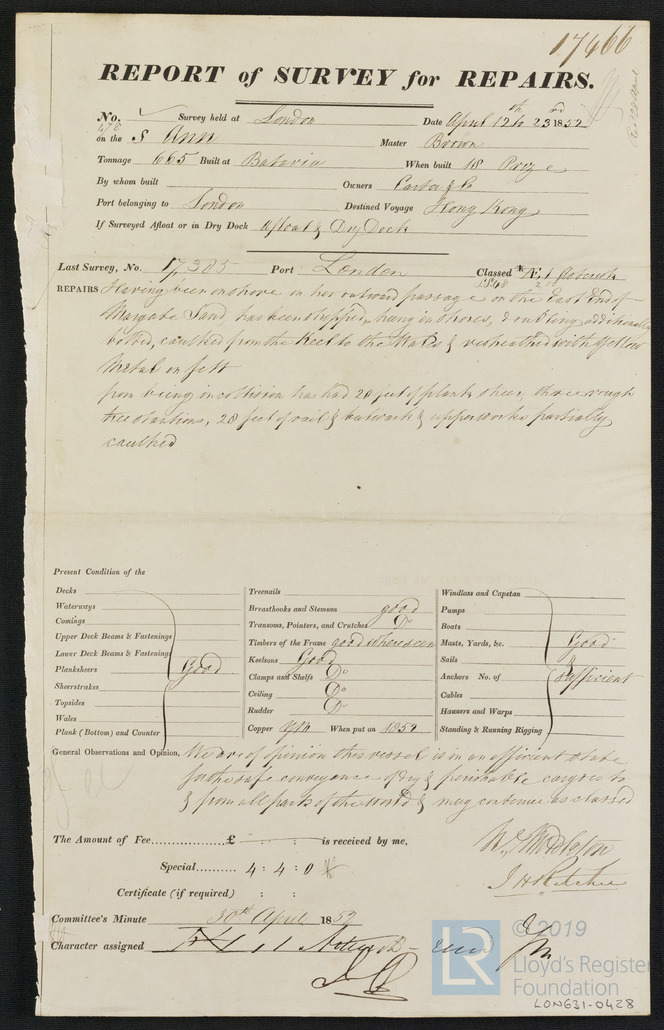 17466
REPORT of SURVEY for REPAIRS.
No. Survey held at London Date April 12th to 23rd 1852
on the S Ann Master Brown
Tonnage 665 Built at Batavia When built 18
By whom built Owners Carter & Co
Port belonging to London Destined Voyage Hong Kong
If Surveyed Afloat or in Dry Dock Afloat & Dry Dock
Last Survey, No. 17385 Port London Classed Æ 1
1848
REPAIRS Having been on shore on her outward passage on the East End of
Margate Sand, has been stripped, hung in shores, & doubling additionally
bolted, caulked from the Keel to the Wales & resheathed with Yellow
Metal on felt
from being in collision has had 28 feet of plank sheer, three rough
tree stantions, 28 feet of rail & bulwark & upperworks partially
caulked
Present Condition of the
Decks
Waterways
Comings
Upper Deck Beams & Fastenings
Lower Deck Beams & Fastenings
Planksheers Good
Sheerstrakes
Topsides
Wales
Plank (Bottom) and Counter
Treenails
Breasthooks and Stemson good
Transoms, Pointers, and Crutches Do
Timbers of the Frame good where seen
Keelsons Good
Clamps and Shelfs Do
Ceiling Do
Rudder Do
Copper YM When put on 1852
Windlass and Capstan
Pumps
Boats
Masts, Yards, &c. Good
Sails &
Anchors No. of Sufficient
Cables
Hausers and Warps
Standing & Running Rigging
General Observations and Opinion, We are of opinion this vessel is in an efficient state
for the safe conveyance of dry & perishable cargoes to
& from all parts of the world & may continue as classed
The Amount of Fee £ : : is received by me,
Special 4 : 4 : 0
Certificate (if required) : :
J H Ritchie
Committee's Minute 30th April 1852
Character assigned
© 2019
LR
Lloyd's Register
Foundation
LON631-0428